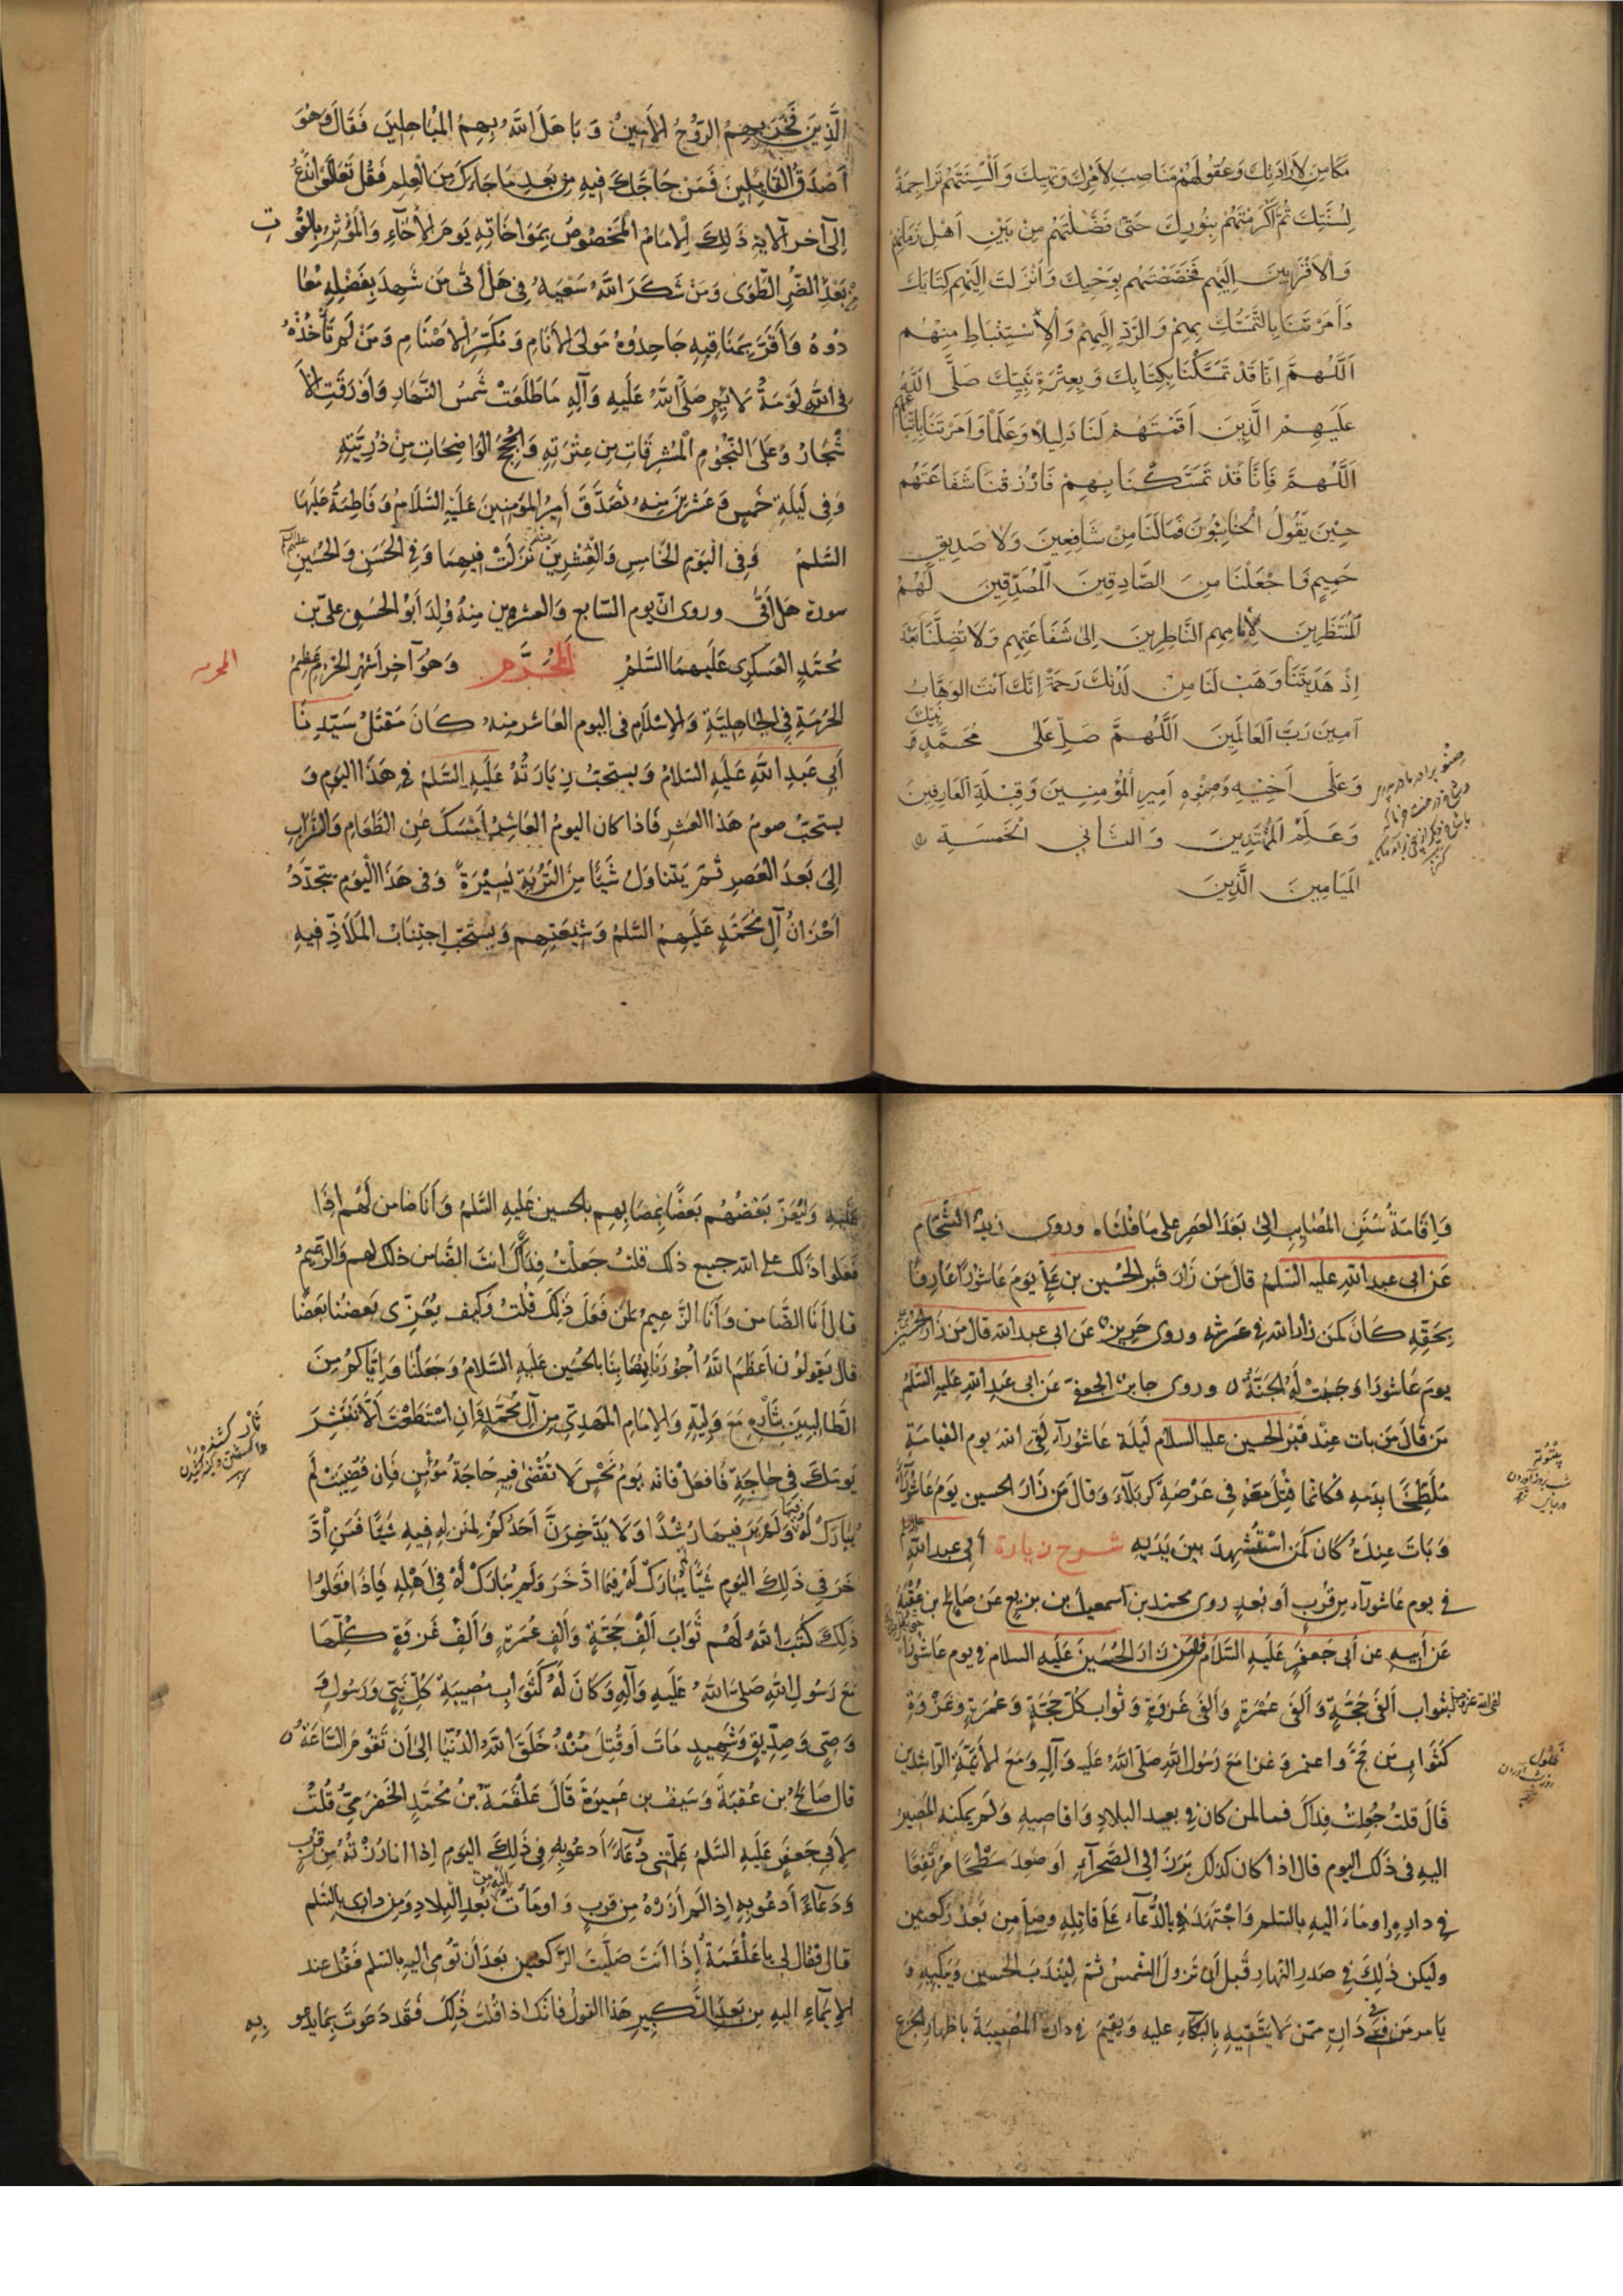 مَكَامِنَ لِاَرَادَتِكَ وَعُقُولَهُمْ مَنَاصِبَ لِاَمْرِكَ وَنَهْيِكَ وَاَلْسِنَتَهُمْ تَرَاجِمَةً
لِسُنَّتِكَ ثُمَّ اَكْرَمْتَهُمْ بِنُورِكَ حَتّٰى فَضَّلْتَهُمْ مِنْ بَيْنِ اَهْلِ زَمَانِهِمْ
وَالْاَقْرَبِينَ اِلَيْهِمْ فَخَصَصْتَهُمْ بِوَحْيِكَ وَاَنْزَلْتَ اِلَيْهِمْ كِتَابَكَ
وَاَمَرْتَنَا بِالتَّمَسُّكِ بِهِمْ وَالرَّدِّ اِلَيْهِمْ وَالْاِسْتِنْبَاطِ مِنْهُمْ
اَللّٰهُمَّ اِنَّا قَدْ تَمَسَّكْنَا بِكِتَابِكَ وَبِعِتْرَةِ نَبِيِّكَ صَلَّى اللّٰهُ
عَلَيْهِمْ الَّذِينَ اَقَمْتَهُمْ لَنَا دَلِيلًا وَعَلَمًا وَاَمَرْتَنَا بِاتِّبَاعِهِمْ
اَللّٰهُمَّ فَاِنَّا قَدْ تَمَسَّكْنَا بِهِمْ فَارْزُقْنَا شَفَاعَتَهُمْ
حِينَ يَقُولُ الْخَائِبُونَ فَمَا لَنَا مِنْ شَافِعِينَ وَلَا صَدِيقٍ
حَمِيمٍ وَاجْعَلْنَا مِنَ الصَّادِقِينَ الْمُصَدِّقِينَ لَهُمْ
الْمُنْتَظِرِينَ لِاَيَّامِهِم النَّاظِرِينَ اِلٰى شَفَاعَتِهِم وَلَا تُضِلَّنَا بَعْدَ
اِذْ هَدَيْتَنَا وَهَبْ لَنَا مِنْ لَدُنْكَ رَحْمَةً اِنَّكَ اَنْتَ الوَهَّابُ
آمِينَ رَبَّ الْعَالَمِينَ اَللّٰهُمَّ صَلِّ عَلٰى مُحَمَّدٍ نَبِيِّكَ
وَعَلٰى اَخِيْهِ وَصِنْوِهِ اَمِيرِ الْمُؤْمِنِينَ وَقِبْلَةِ الْعَارِفِينَ
وَعَلَمِ الْمُهْتَدِينَ وَالثَّانِي الْخَمْسَةِ
الْمَيَامِينَ الَّذِينَ
الَّذِينَ فَخَرَ بِهِمُ الرُّوحُ الْاَمِينُ وَبَاهَلَ اللّٰهُ بِهِمُ الْمُبَاهِلِينَ فَقَالَ وَهُوَ
اَصْدَقُ الْقَائِلِينَ فَمَنْ حَاجَّكَ فِيهِ مِنْ بَعْدِ مَا جَاءَكَ مِنَ الْعِلْمِ فَقُلْ تَعَالَوْا نَدْعُ
اِلٰى آخر الآيَة ذَلِكَ الْاِمَامُ الْمَخْصُوصُ بِمُوَاخَاتِهِ يَوْمَ الْاِخَاءِ وَالْمُؤْثِرُ بِالْقُوتِ
بَعْدَ الضُّرِّ الطَّوَى وَمَنْ شَكَرَ اللّٰهُ سَعْيَهُ فِي هَلْ أَتٰى مَن شَهِدَ بِفَضْلِهِ مُعَا
دُوهُ وَاَقَرَّ بِمَنَاقِبِهِ جَاحِدُوهُ مَولَى الْاَنَامِ وَمُكَسِّرُ الْاَصْنَامِ وَمَنْ لَمْ تَأْخُذْهُ
فِي اللّٰهِ لَوْمَةُ لَائِمٍ صَلَّى اللّٰهُ عَلَيْهِ وَآلِهِ مَا طَلَعَتْ شَمْسُ النَّهَارِ وَاَوْرَقَتِ الْاَ
شْجَارُ وَعَلَى النُّجُومِ الْمُشْرِقَاتِ مِن عِتْرَتِهِ وَالْحُجَجِ الْوَاضِحَاتِ مِنْ ذُرِّيَّتِهِ
وَفِي لَيْلَةِ خَمْسٍ وَعِشْرِينَ مِنْهُ تَصَدَّقَ اَمِيرُ الْمُؤْمِنِينَ عَلَيْهِ السَّلَامُ وَفَاطِمَةُ عَلَيْهَا
السَّلمُ وَفِي الْيَوْمِ الْخَامِسِ وَالْعِشْرِينَ مِنْهُ نَزَلَتْ فِيهِمَا وَفِي الْحَسَنِ وَالْحُسَيْنِ
سورة هَل أَتٰى وروى انّ يوم السّابع وَالعشرين مِنهُ وُلِدَ اَبُو الْحَسَنِ عَلِيّ بن
مُحَمَّدٍ العَسْكَرِي عَلَيهِمَا السَّلمُ الْمُحَرَّم وَهُوَ آخر اَشْهُرِ الْحُرُمِ عَظِيمُ
المحرم
الْحُرْمَةِ فِي الْجَاهِلِيَّةِ وَالْاِسْلَامِ فِي اليوم العَاشر مِنهُ كَانَ مَقْتَلُ سَيِّدِنَا
اَبِي عَبْدِ اللّٰهِ عَلَيْهِ السَّلَامُ وَيستحبّ زِيَارَتُهُ عَلَيْهِ السَّلمُ فِي هَذَا اليَوْمِ وَ
يستحبّ صومُ هَذا العَشرِ فَاذا كان اليومُ العَاشِرُ اَمْسَكَ عَنِ الطَّعَامِ وَالشَّرابِ
اِلٰى بَعدَ العَصرِ ثُمَّ يَتَنَاوَلُ شَيْئًا مِنَ التُّرْبَةِ يَسِيْرَةً وَفِي هَذَا الْيَوْمِ يتَجَدَّدُ
اَحْزَانُ آلِ مُحَمَّدٍ عَلَيْهِمُ السَّلمُ وَشِيعَتِهِم وَيستَحَبّ اِجْتِنَابُ الْمَلَاذِّ فِيهِ
وَاِقَامَةُ سُنَنِ المصَايِبِ اِلٰى بَعْدَ العَصْرِ عَلى مَا قُلْنَاه وروى زيدٌ الشّحّام
عَن ابى عبد اللّٰهِ عليه السَّلمُ قالَ مَن زَارَ قَبرَ الحُسَين بن عَلِىٍّ يَومَ عَاشُورَا عَارِفًا
بِحَقِّهِ كَانَ كَمَن زارَ اللّٰهَ فِي عَرشِهِ وروى حَرِيز عَن ابى عبد اللّٰه قالَ مَن زَارَ الحُسَين
يومَ عَاشُورَا وَجَبَتْ لَهُ الْجَنَّةُ وروى جابرٌ الجعفى عَن ابى عَبدِ اللّٰهِ عَلَيْهِ السَّلمُ
مَن قَالَ مَن بات عِنْدَ قَبْرِ الحسين عليه السلام لَيلَةَ عَاشُورَآءَ لَقِىَ اللّٰه يوم القيامَةِ
مُلَطَّخًا بِدَمِهِ فكانّما قُتِلَ مَعَهُ فِي عَرْصَةِ كربَلآءَ وَقالَ مَن زَارَ الحسين يَومَ عَاشُورَآءَ
وَبَاتَ عِندَهُ كَانَ كَمَن اسْتُشْهِدَ بينَ يَدَيهِ شرح زيارة اَبِي عبد اللّٰه
فِي يوم عَاشُورآء مِن قُربٍ أو بُعدٍ روى محمد بن اسمعيل بن بزيع عَن صَالِحِ بن عُقْبَةَ
عَن أَبيهِ عن أبى جَعفَرٍ عَلَيهِ السَّلَام قال مَن زَارَ الْحُسَينَ عَلَيهِ السلام فى يوم عَاشُورآء
لقى اللّٰه عزّ وجلّ بثواب اَلفَى حَجَّةٍ وَاَلفَى عُمْرَةٍ وَاَلفَى غَزوَةٍ وَثَواب كلّ حَجَّةٍ وَعُمرَةٍ وَغَزْوَةٍ
كَثَوابِ مَن حَجَّ واعتمر وَغَزا مَعَ رَسُول اللّٰهِ صَلَّى اللّٰهُ عَلَيهِ وَآلِهِ وَمَعَ الْأَئِمَّةِ الرَّاشدين
قَالَ قلتُ جُعِلتُ فِدَاكَ فما لمن كانَ فِي بعيد البلَادِ وَاقَاصِيهِ وَلَم يمكنه المَصِيرُ
اليهِ فى ذَلكَ اليوم قال اذا كان كذلك بَرَزَ الى الصَّحرآءِ أو صَعِدَ سَطْحًا مُرتَفِعًا
فِي دارِهِ واومَأ اليهِ بالسّلم وَاجْتَهَدَ فِي الدُّعَآءِ عَلَى قَاتِلِهِ وصَلّى مِن بَعْدُ رَكعتين
وليكن ذَلِكَ فِي صَدرِ النَّهارِ قَبلَ اَن تَزولَ الشّمسُ ثمّ لِيَندُب الحسين وَيَبكِيهِ وَ
يَأمر مَن فِي دَارِهِ ممّن لَا يتَّقِيهِ بِالبُكَاءِ عليه وَيُقِيم فِي دَارِهِ المُصِيبَةَ باظهارِ الجَزَع
عَلَيهِ وَليُعَزّ بَعضُهُم بَعضًا بِمصَابِهِم بالحسين عَليهِ السَّلمُ وَأَنَا ضامن لَهُم اذَا
فَعَلوا ذَلكَ على اللّٰه جميع ذلك قلتُ جعلتُ فِدَاكَ انتَ الضّامن ذلك لهم وَالزّعيمُ
قالَ أَنَا الضَّامن وَأَنا الزَّعيمُ لمن فَعَلَ ذَلِكَ قُلْتُ وَكَيف يُعَزّى بَعضُنا بَعضًا
قال يَقولُون اَعْظَمَ اللّٰهُ اُجُورَنَا بِمُصَابِنَا بالحُسَين عَلَيهِ السَّلامُ وَجَعَلَنَا وَاِيَّاكُم مِنَ
الطَّالِبِينَ بِثَأرِهِ مَعَ وَلِيِّهِ وَالاِمَامِ الْمَهدِيّ مِن آلِ مُحَمَّدٍ فَاِن اسْتَطَعْتَ أَلَّا تَنْتَشِرَ
يَومَكَ فِي حَاجَةٍ فَافعَلْ فانّه يَومُ نَحْسٍ لَا تُقْضٰى فِيهِ حَاجَةُ مُؤْمِنٍ فَاِن قُضِيَتْ لَم
يُبَارَكْ لَهُ فيها وَلَم يَرَ فيهَا رُشْدًا وَلَا يَدَّخِرَنَّ اَحَدُكُم لِمَنزِلِهِ فِيهِ شَيْئًا فَمَنِ ادَّ
خَرَ فِي ذَلِكَ اليَوْمِ شَيْئًا لَم يُبَارَكْ لَهُ فِيمَا ادَّخَرَ وَلَم يُبَارَكْ لَهُ فِي اَهْلِهِ فَاِذَا فَعَلُوا
ذَلِكَ كَتَبَ اللّٰهُ لَهُم ثَوَابَ اَلْفِ حَجَّةٍ وَاَلفِ عُمرَةٍ وَاَلفِ غَزوَةٍ كُلّهَا
مَعَ رَسُولِ اللّٰهِ صَلّى اللّٰهُ عَلَيهِ وَآلِهِ وَكَانَ لَهُ كَثَوَابِ مُصِيبَةِ كُلّ نَبِيٍّ وَرَسُولٍ وَ
وَصِيٍّ وَصِدِّيقٍ وَشَهِيدٍ مَاتَ أو قُتِلَ مُنْذُ خَلَقَ اللّٰهُ الدُّنْيَا اِلٰى أَن تَقُومَ السَّاعَةُ
قال صَالحُ بن عُقبَةَ وَسَيفُ بن عَمِيرَةَ قَالَ عَلْقَمَةُ بنُ مُحَمَّدٍ الحَضرَمِيّ قُلْتُ
لِأَبِي جَعفَرٍ عَلَيهِ السَّلمُ عَلِّمني دُعَآءً اَدعُو بِهِ فِي ذَلِكَ اليَومِ اِذَا اَنَا زُرْتُهُ مِن قُربٍ
وَدُعَآءً أَدعُو بِهِ اِذا لَم اَزُرْهُ مِن قُربٍ وَاومَأتُ اليه مِن بُعدِ البِلادِ وَمِن دارى بالسّلم
قال فقالَ لِى يا عَلْقَمَةُ اِذَا اَنتَ صَلَّيْتَ الرَّكعتين بَعدَ أَن تُومِئَ اليهِ بالسّلم فقُلْ عند
الاِيمَاءِ اليهِ مِن بَعدِ التَّكبِيرِ هَذا القولُ فانّكَ اذا قلتَ ذَلِكَ فَقَد دَعَوتَ بِمَا يَدعُو بِهِ